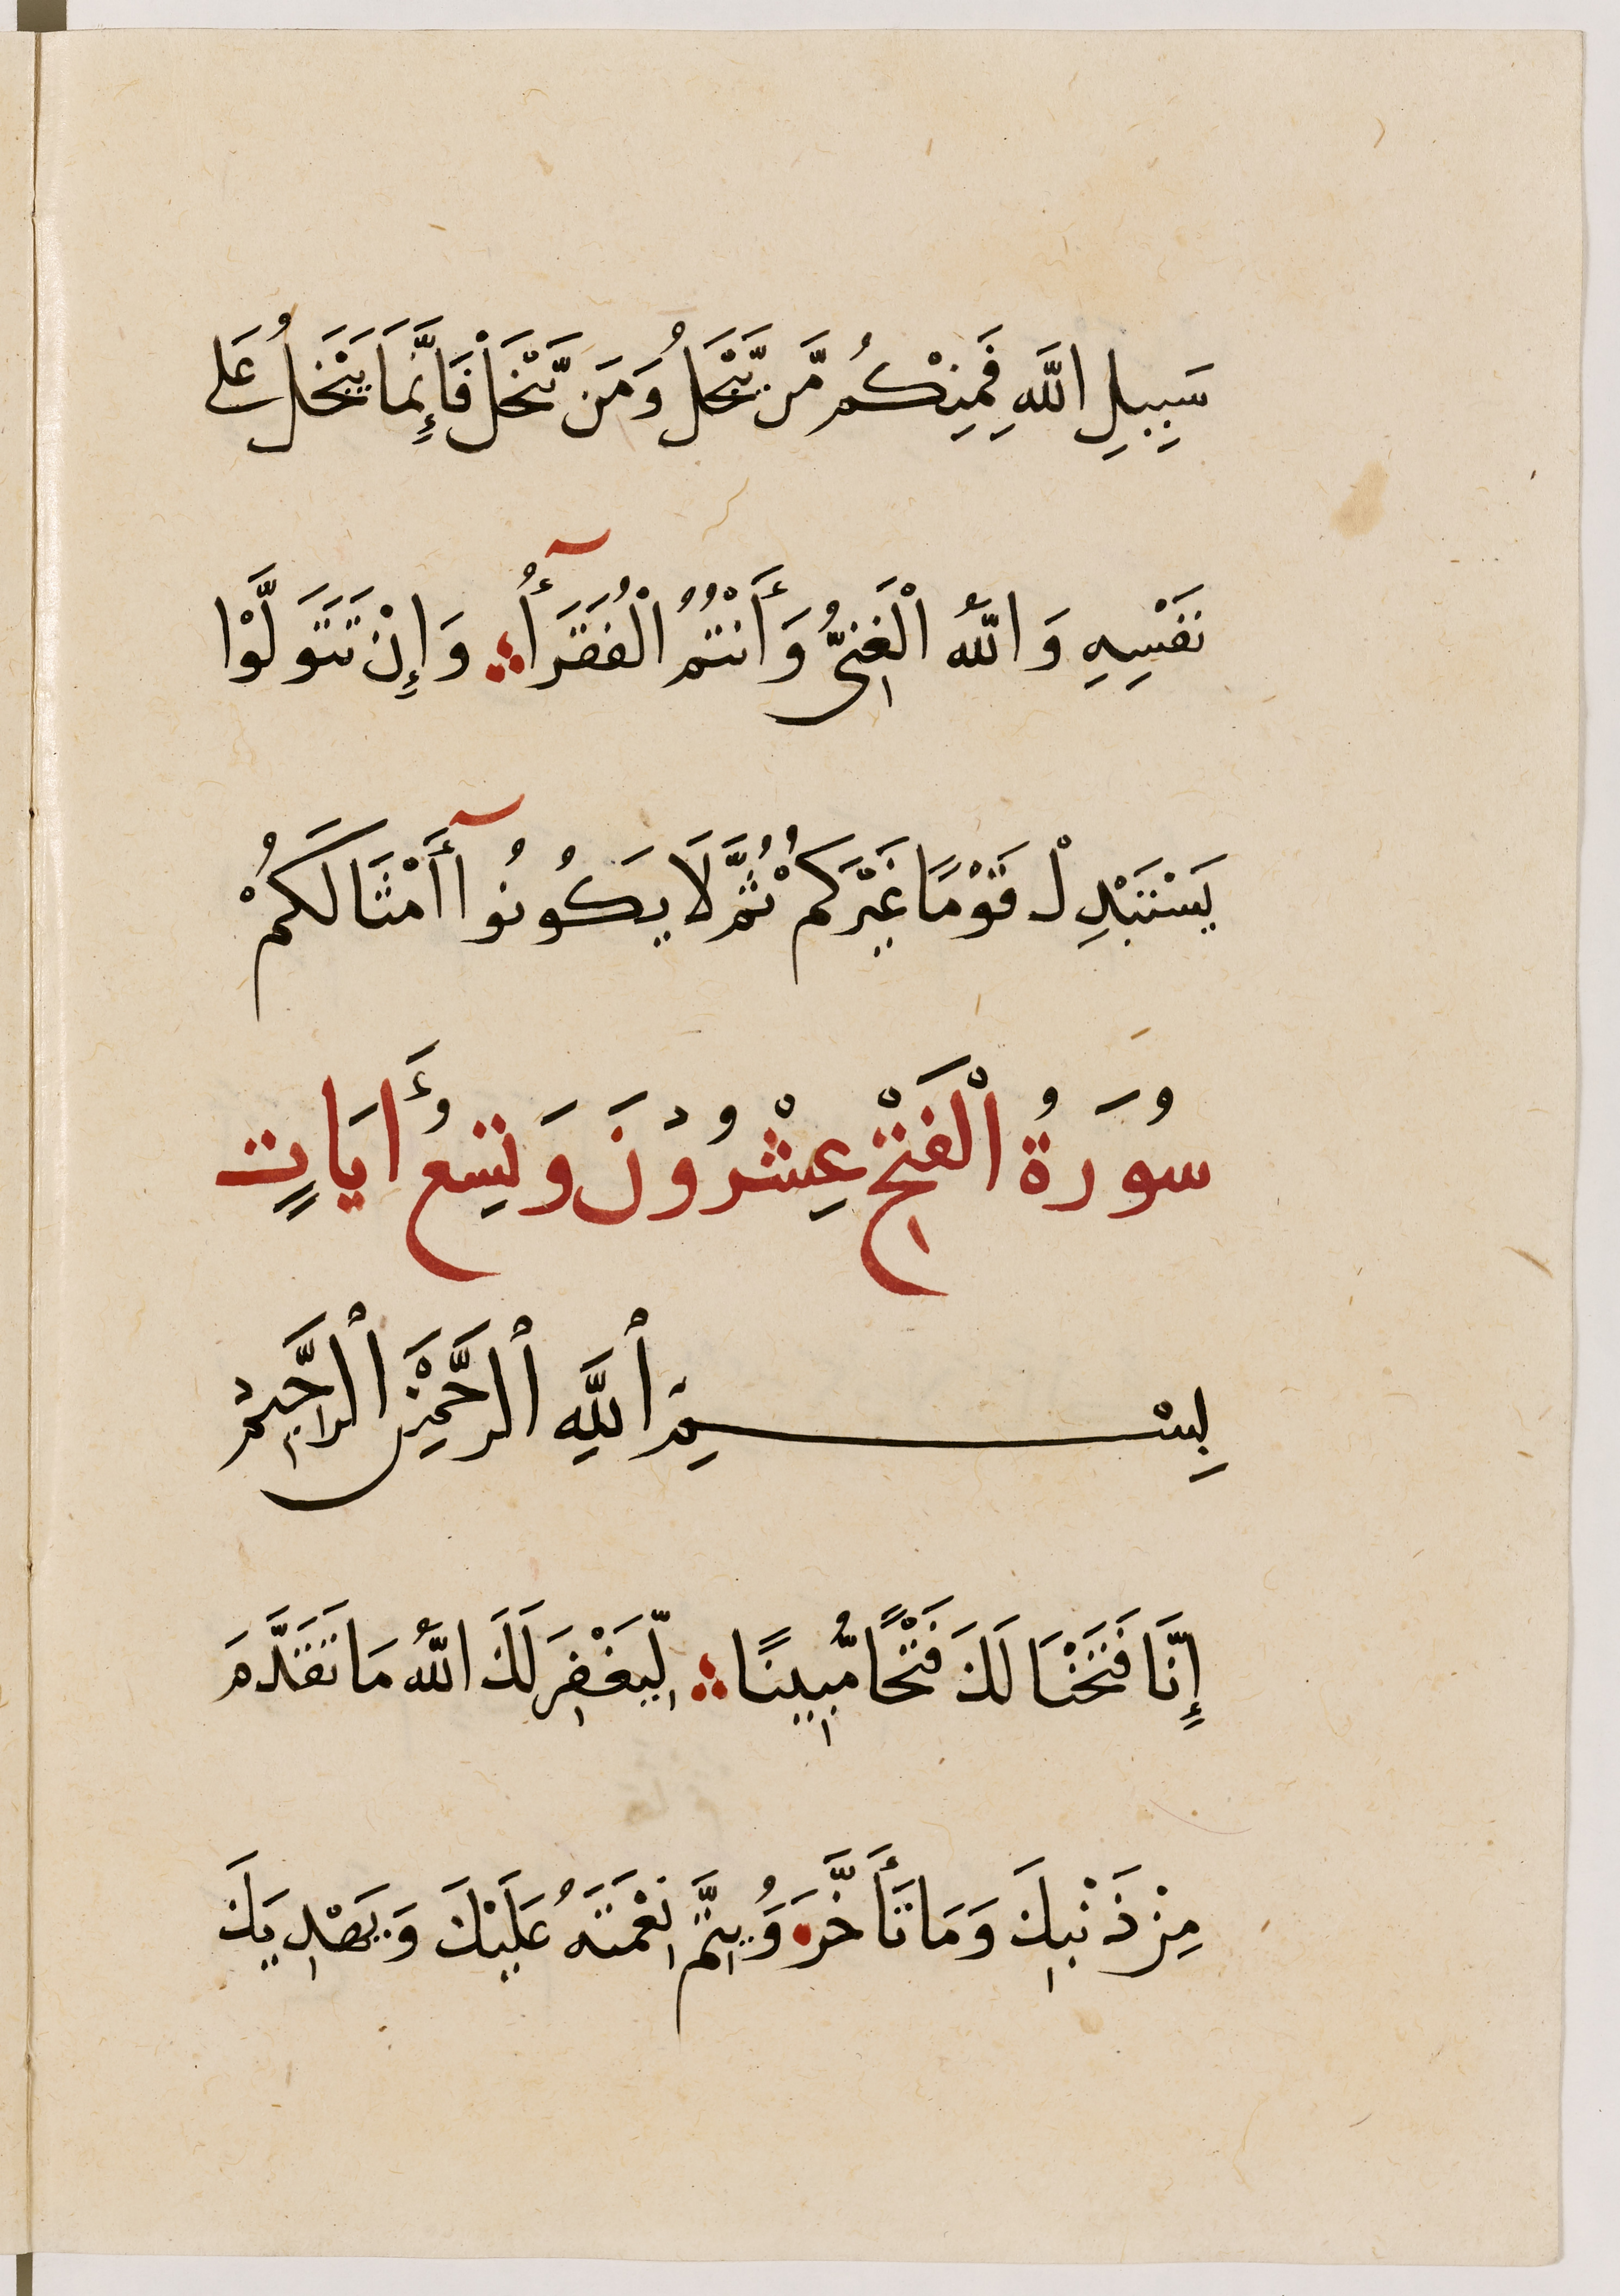 سَبِيلِ اللَّهِ فَمِنْكُم مَّن يَّبْخَلُ وَمَن يَّبْخَلْ فَإِنَّمَا يَبْخَلُ عَلَى
نَفْسِهِ وَاللَّهُ الْغَنِيُّ وَأَنْتُمُ الْفُقَرَآُ وَإِنْ تَتَوَلَّوْا
يَسْتَبْدِلْ قَوْمًا غَيْرَكُمْ ثُمَّ لَا يَكُونُوآ أَمْثَالَكُمْ
سُورَةُ الْفَتْحِ عِشْرُونَ وَتِسْعُ أَيَاتٍ
بِسْمِ اللَّهِ الرَّحْمَنِ الرَّحِيمِ
إِنَّا فَتَحْنَا لَكَ فَتْحًا مُّبِينًا لِّيَغْفِرَ لَكَ اللَّهُ مَا تَقَدَّمَ
مِنْ ذَنْبِكَ وَمَا تَأَخَّرَ وَيُتِمَّ نِعْمَتَهُ عَلَيْكَ وَيَهْدِيَكَ